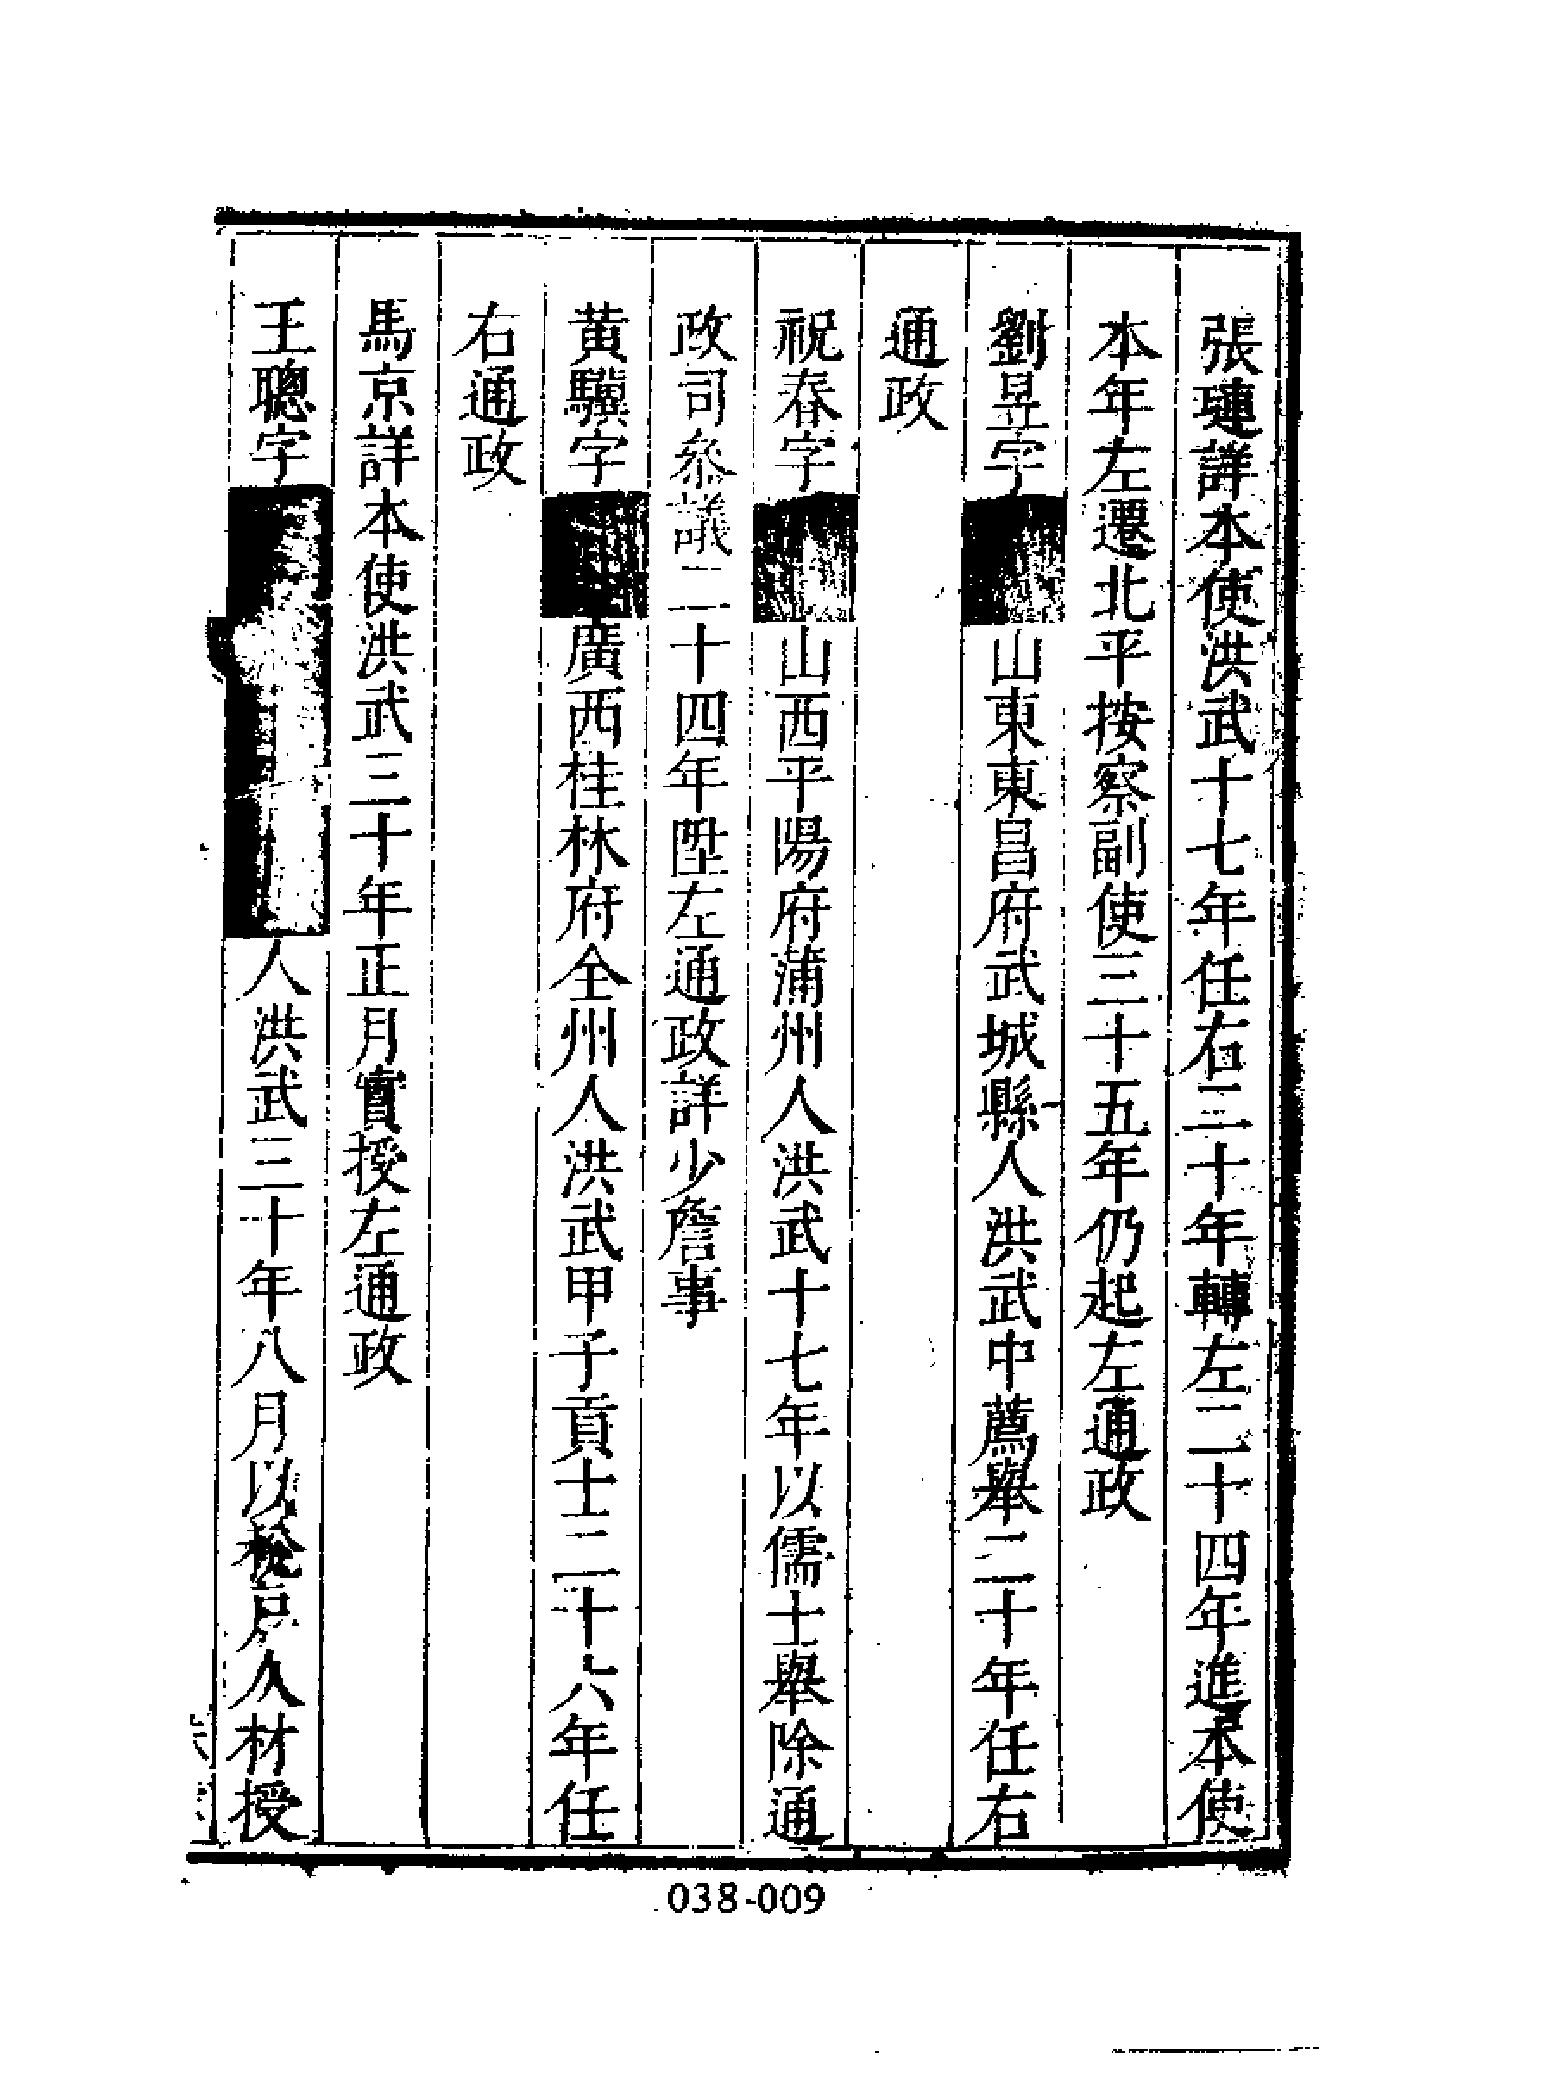 張璉詳本使洪武十七年任右三十年轉左二十四年進本使
本年左遷北平按察副使三十五年仍起左通政
劉昱字山東東昌府武城縣人洪武中薦舉二十年任右
通政
祝春字山西平陽府蒲州人洪武十七年以儒士舉除通
政司叅議二十四年陞左通政詳少詹事
黃驥字廣西桂林府全州人洪武甲子貢士二十六年任
右通政
馬京詳本使洪武三十年正月實授左通政
王聰字人洪武三十年八月以稅戶人材授
038-009